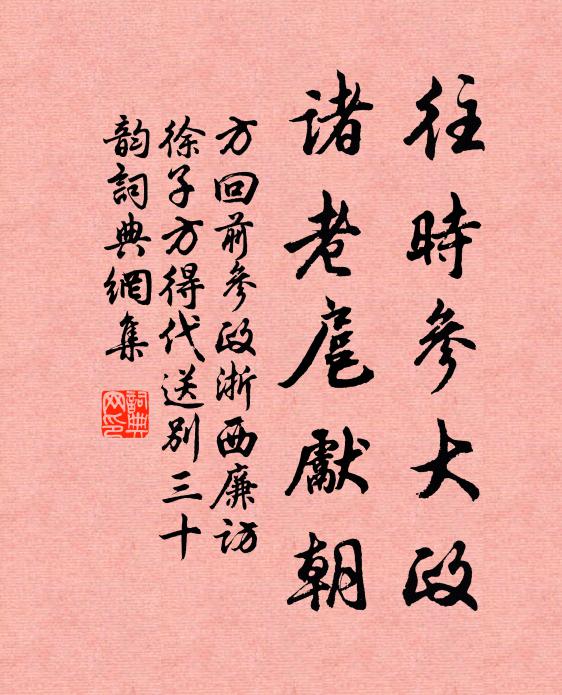 往時參大政
諸老扈獻朝
方回前參政浙西廉访
徐子方得代送別三十
韵詞典網集
詞典
网印